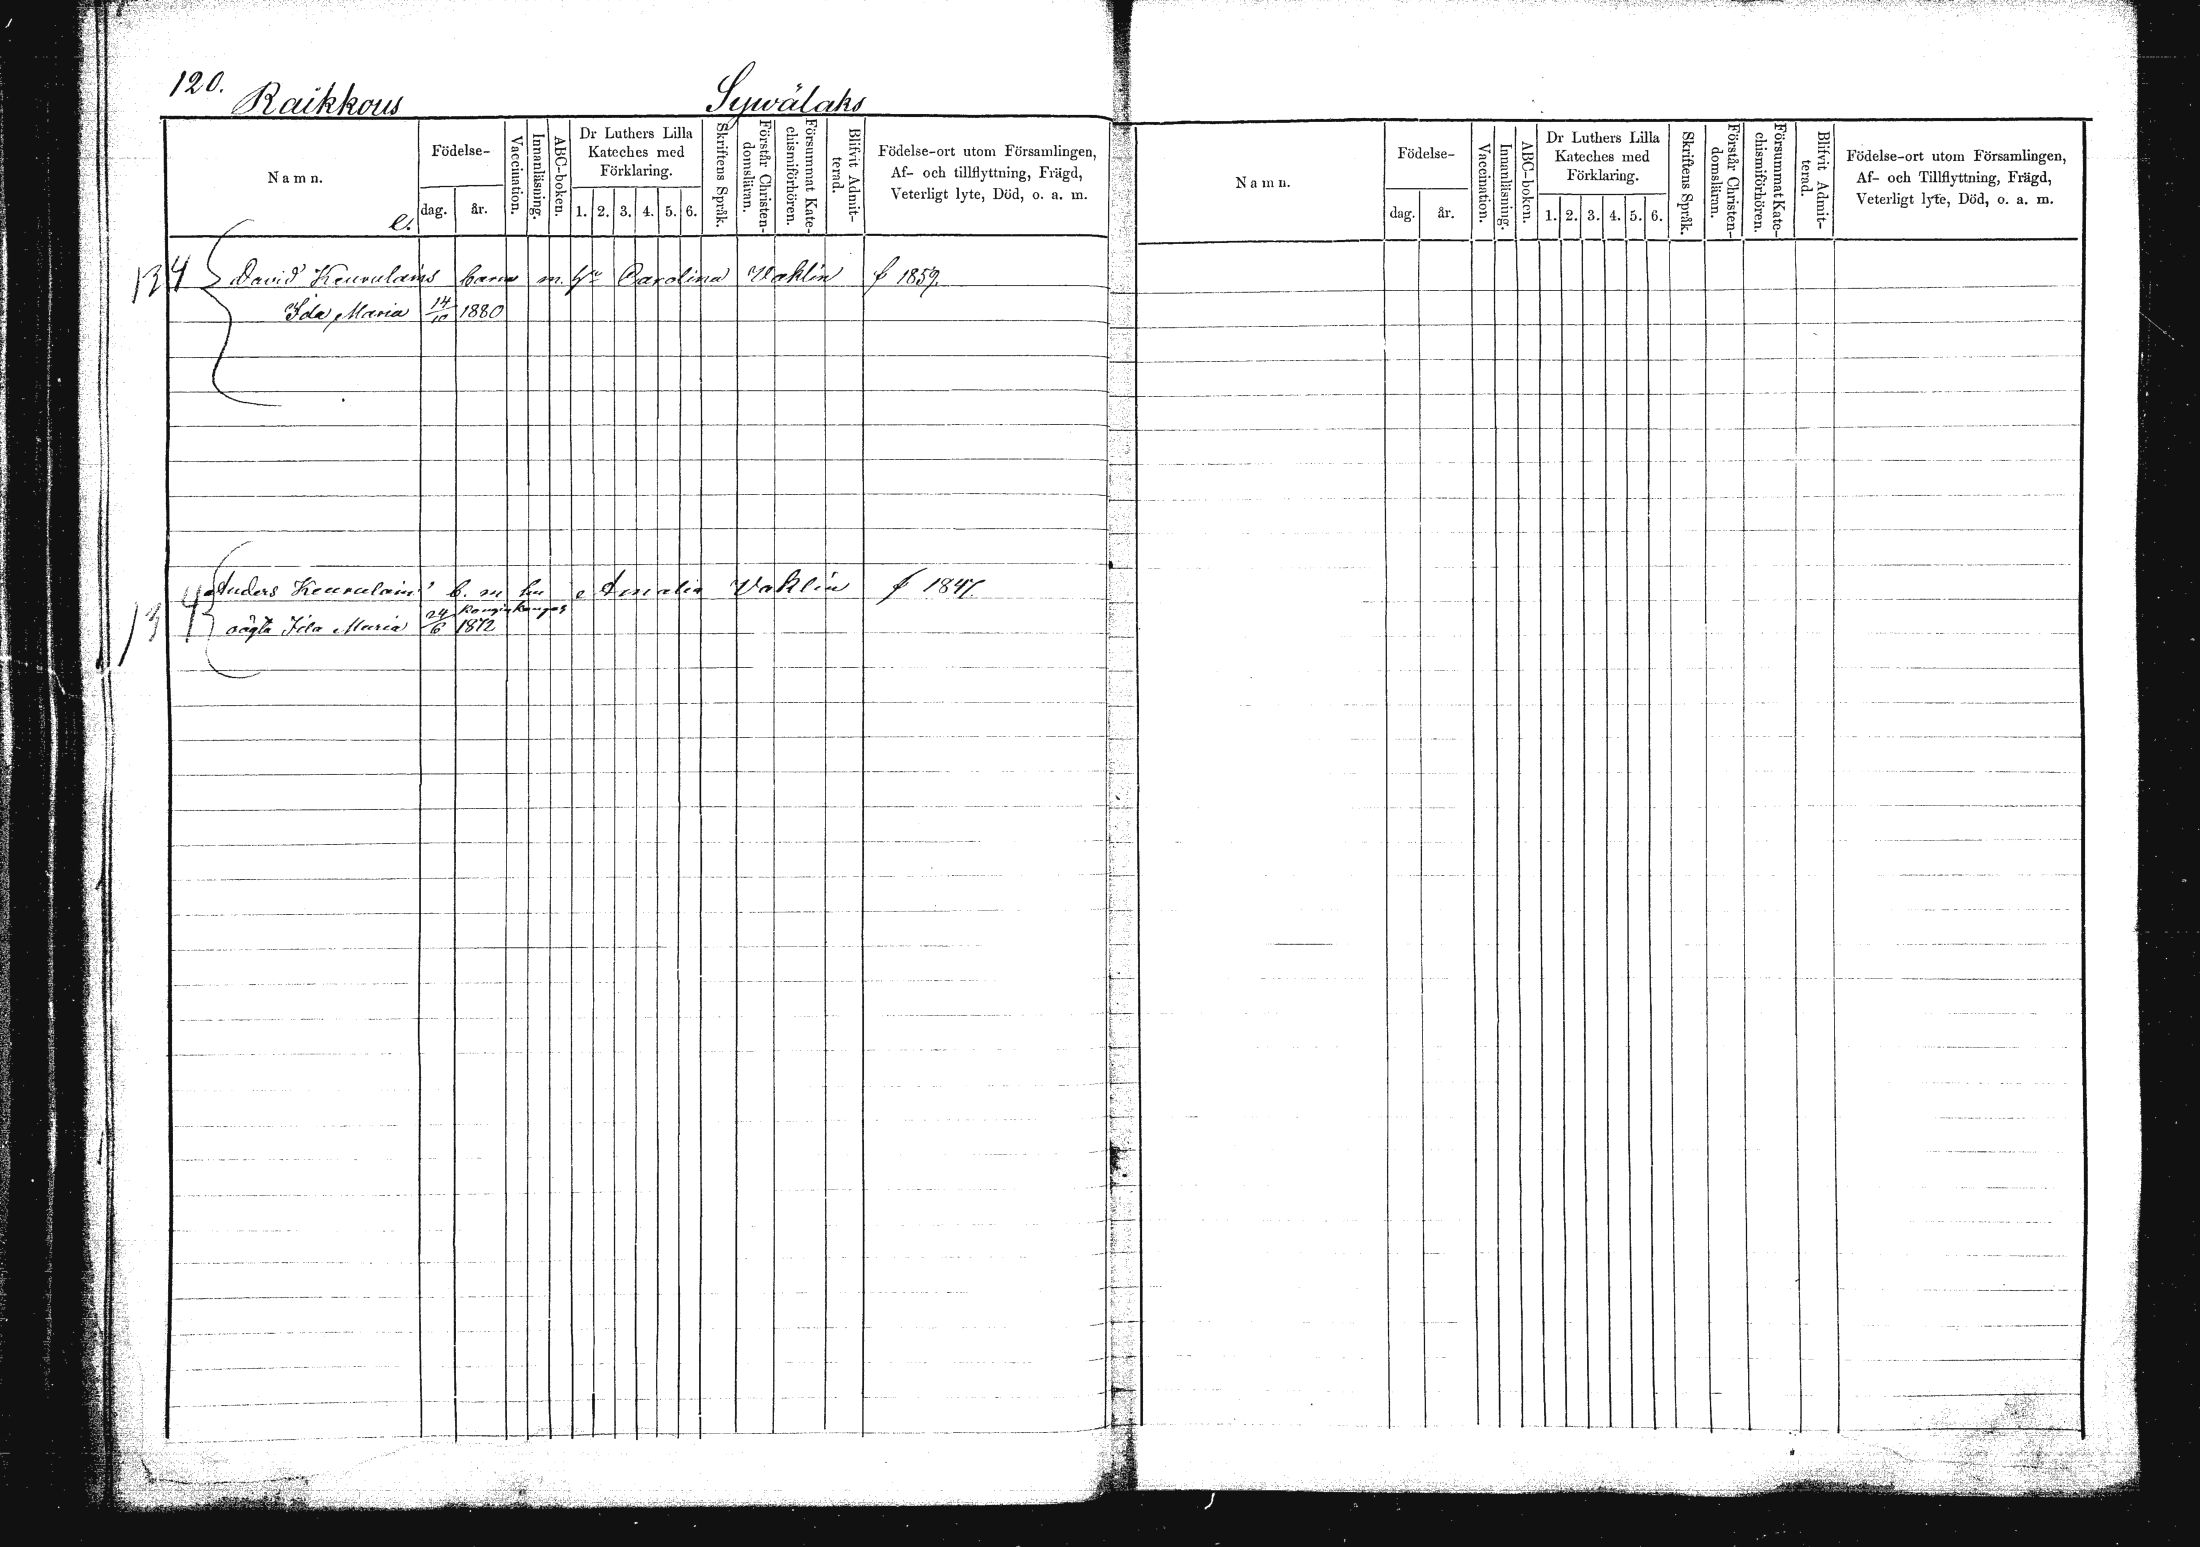 120.
Raikkous Sywälaks
Namn.
e.
Födelse-
dag. år.
Vaccination.
Innanläsning.
ABC-boken.
Dr Luthers Lilla
Kateches med
Förklaring.
1. 2. 3. 4. 5. 6.
Skriftens Språk.
Förstår Christen-
domsläran.
Försummat Kate-
chismiförhören.
Blifvit Admit-
terad.
Födelse-ort utom Församlingen,
Af- och tillflyttning, Frägd,
Veterligt lyte, Död, o. a. m.
134 David Keurulains barn m. Carolina Vaklin f 1859.
Ida Maria 14/10 1880
134 Anders Keurulain b. m Amalia Vaklin f 1847.
Ronginkangas
oägta Ida Maria 24/6 1872
Namn.
Födelse-
dag. år.
Vaccination.
Innanläsning.
ABC-boken.
Dr Luthers Lilla
Kateches med
Förklaring.
1. 2. 3. 4. 5. 6.
Skriftens Språk.
Förstår Christen-
domsläran.
Försummat Kate-
chismiförhören.
Blifvit Admit-
terad.
Födelse-ort utom Församlingen,
Af- och Tillflyttning, Frägd,
Veterligt lyte, Död, o. a. m.